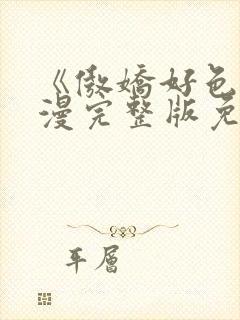 《傲嬌好色
漫完整版免
平層